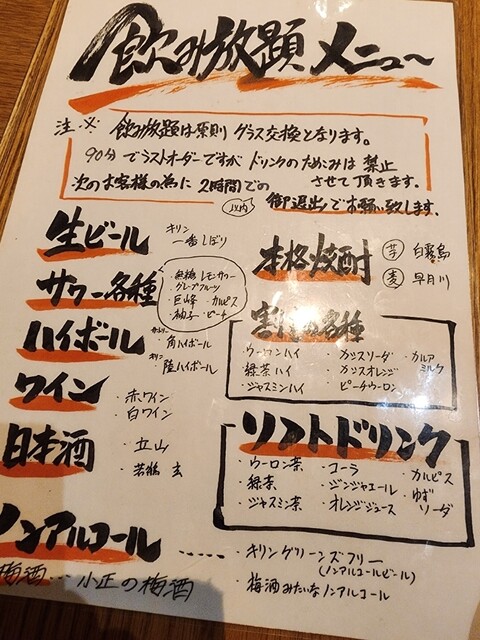 飲み放題メニュー
注※ 飲み放題は原則 グラス交換となります。
90分でラストオーダーですが ドリンクのためこみは禁止
させて頂きます。
次のお客様の為に 2時間での
以内
御退出でお願い致します。
生ビール
キリン
一番しぼり
サワー各種
・無糖レモンサワー
・グレープフルーツ
・巨峰 ・カルピス
・柚子 ・ピーチ
ハイボール
・角ハイボール
キリン
・陸ハイボール
ワイン
・赤ワイン
・白ワイン
日本酒
・立山
・若鶴 玄
本格焼酎
芋 白霧島
麦 早月川
各種
・ウーロンハイ
・緑茶ハイ
・ジャスミンハイ
・カシスソーダ
・カシスオレンジ
・ピーチウーロン
・カルア
ミルク
ソフトドリンク
・ウーロン茶
・緑茶
・ジャスミン茶
・コーラ
・ジンジャエール
・オレンジジュース
・カルピス
・ゆず
ソーダ
ノンアルコール
・キリングリーンズフリー
(ノンアルコールビール)
・梅酒みたいなノンアルコール
梅酒…小正の梅酒